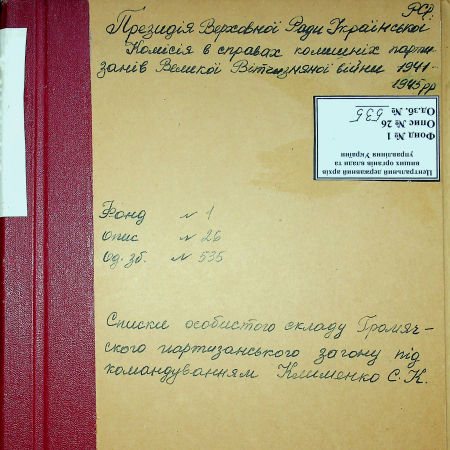 Президія Верховної Ради Української РСР;
Комісія в справах колишніх парти-
занів Великої Вітчизняної війни 1941-
1945 рр
Центральний державний архів
вищих органів влади та
управління України
Фонд № 1
Опис № 26
Од.зб. № 535
Фонд № 1
опис № 26
Од. зб. № 535
Списки особистого складу Громяч-
ського партизанського загону під
командуванням Клименко С.К.